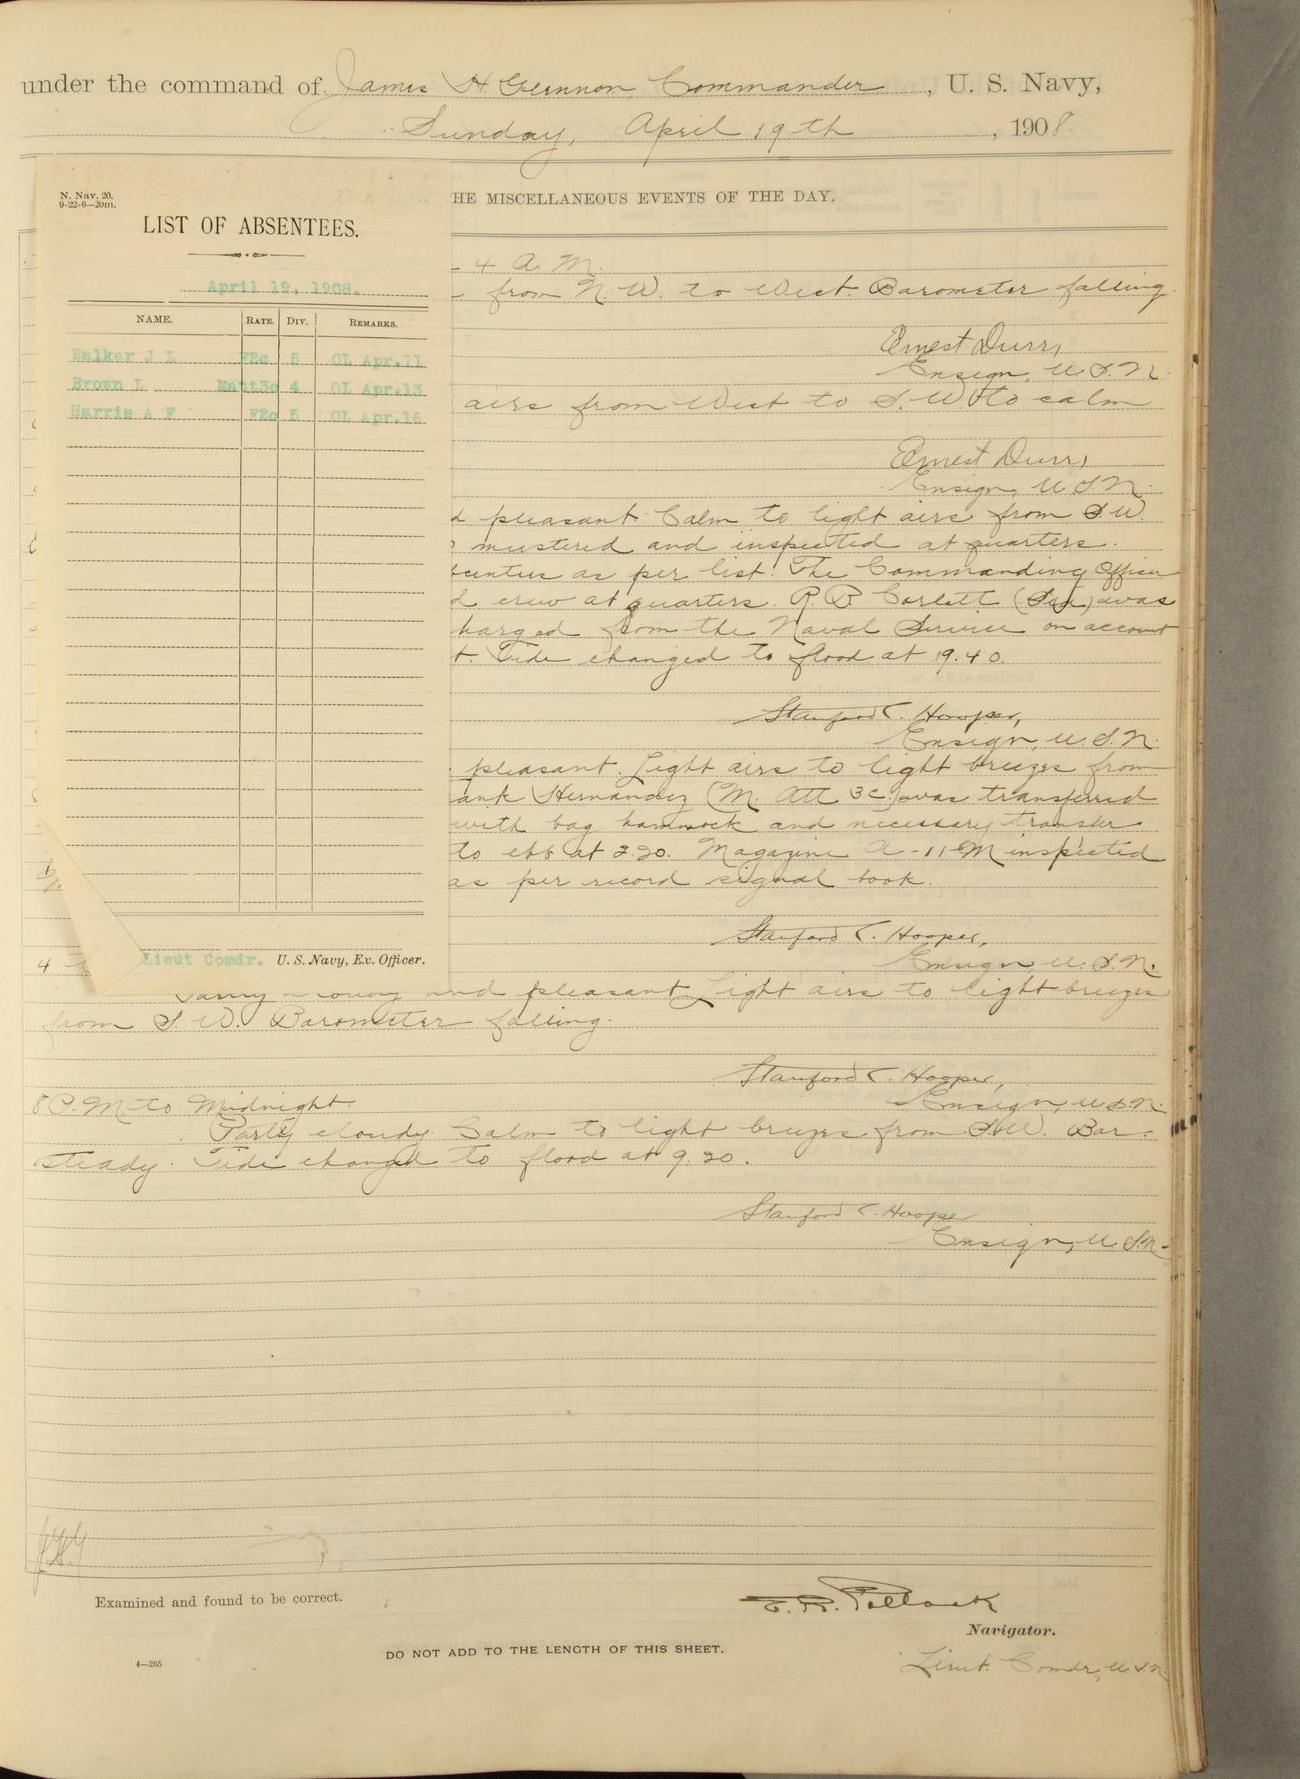 under the command of James H Glennon, Commander, U. S. Navy,
Sunday, April 19th, 1908.
HE MISCELLANEOUS EVENTS OF THE DAY.
N. Nav. 20.
9-22-6—20m.
LIST OF ABSENTEES.
April 19, 1908.
NAME. RATE. DIV. REMARKS.
Walker J L F2c 5 OL Apr.11
Brown L Matt3c 4 OL Apr.13
Harris A F F2c 5 OL Apr.15
Lieut Comdr. U. S. Navy, Ex. Officer.
4 A. M.
from N. W. to West. Barometer falling.
Ernest Durr,
Ensign, U. S. N.
airs from West to S. W. to calm
Ernest Durr,
Ensign, U. S. N.
d pleasant Calm to light airs from S. W.
mustered and inspected at quarters.
sentees as per list. The Commanding Officer
d crew at quarters. R. B. Corlett (Sea) was
harged from the Naval Service on account
t. Tide changed to flood at 9.40.
Stanford C. Hooper,
Ensign, U. S. N.
pleasant. Light airs to light breezes from
ank Hernandez (M. Att 3c) was transferred
with bag hammock and necessary transfer
to ebb at 3.20. Magazine A-11-M inspected
as per record signal book.
Stanford C. Hooper,
Ensign, U. S. N.
4
Partly cloudy and pleasant Light airs to light breezes
from S. W. Barometer falling.
Stanford C. Hooper,
Ensign, U. S. N.
8 P. M. to Midnight.
Partly cloudy. Calm to light breezes from S. W. Bar.
steady. Tide changed to flood at 9.20.
Stanford C. Hooper
Ensign, U. S. N.
Examined and found to be correct.
E. R. Pollock
Navigator.
DO NOT ADD TO THE LENGTH OF THIS SHEET.
4—265
Lieut. Comdr., U S N